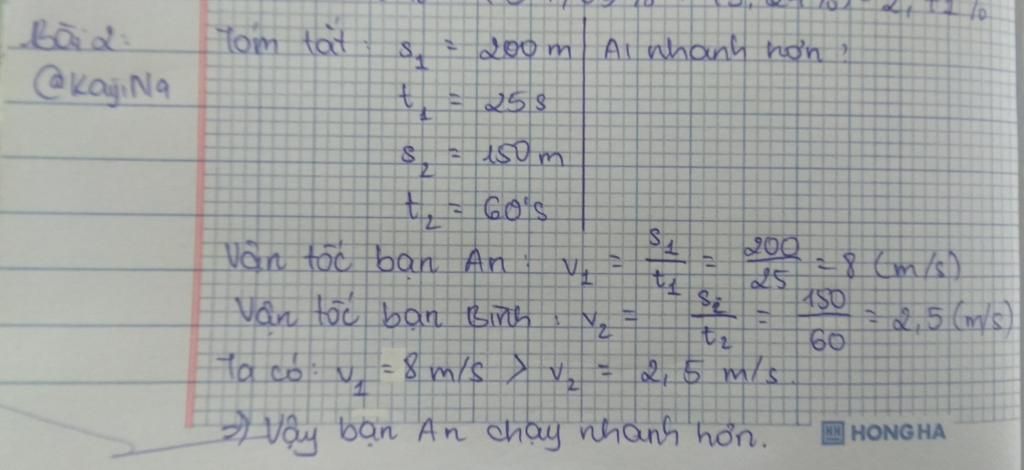 Bài 2: Tóm tắt: s₁ = 200 m | Ai nhanh hơn?
@KajiNa t₁ = 25 s
s₂ = 150 m
t₂ = 60 s
Vận tốc bạn An: v₁ = s₁/t₁ = 200/25 = 8 (m/s)
Vận tốc bạn Bình: v₂ = s₂/t₂ = 150/60 = 2,5 (m/s)
Ta có: v₁ = 8 m/s > v₂ = 2,5 m/s.
=> Vậy bạn An chạy nhanh hơn.
HH HONG HA